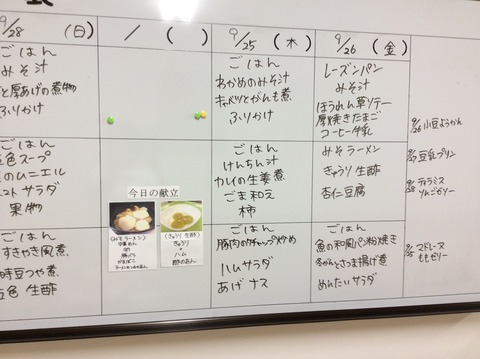 9/28 (日)
ごはん
みそ汁
と厚あげの煮物
ふりかけ
色スープ
のムニエル
サラダ
果物
ごはん
すきやき風煮
豆つや煮
色 生酢
/ ( )
今日の献立
(みそラーメン)
(きゅうり 生酢)
きゅうり
ハム
9/25 (木)
ごはん
わかめのみそ汁
キャベツとがんも煮
ふりかけ
ごはん
けんちん汁
カレイの生姜煮
ごま和え
柿
ごはん
豚肉のケチャップ炒め
ハムサラダ
あげナス
9/26 (金)
レーズンパン
みそ汁
ほうれん草ソテー
厚焼きたまご
コーヒー牛乳
みそラーメン
きゅうり生酢
杏仁豆腐
ごはん
魚の和風パン粉焼き
冬がんとさつま揚げ煮
めんたいサラダ
9/26 小豆ようかん
豆乳プリン
9/28 ティラミス
りんごゼリー
9/25 マドレーヌ
ももゼリー